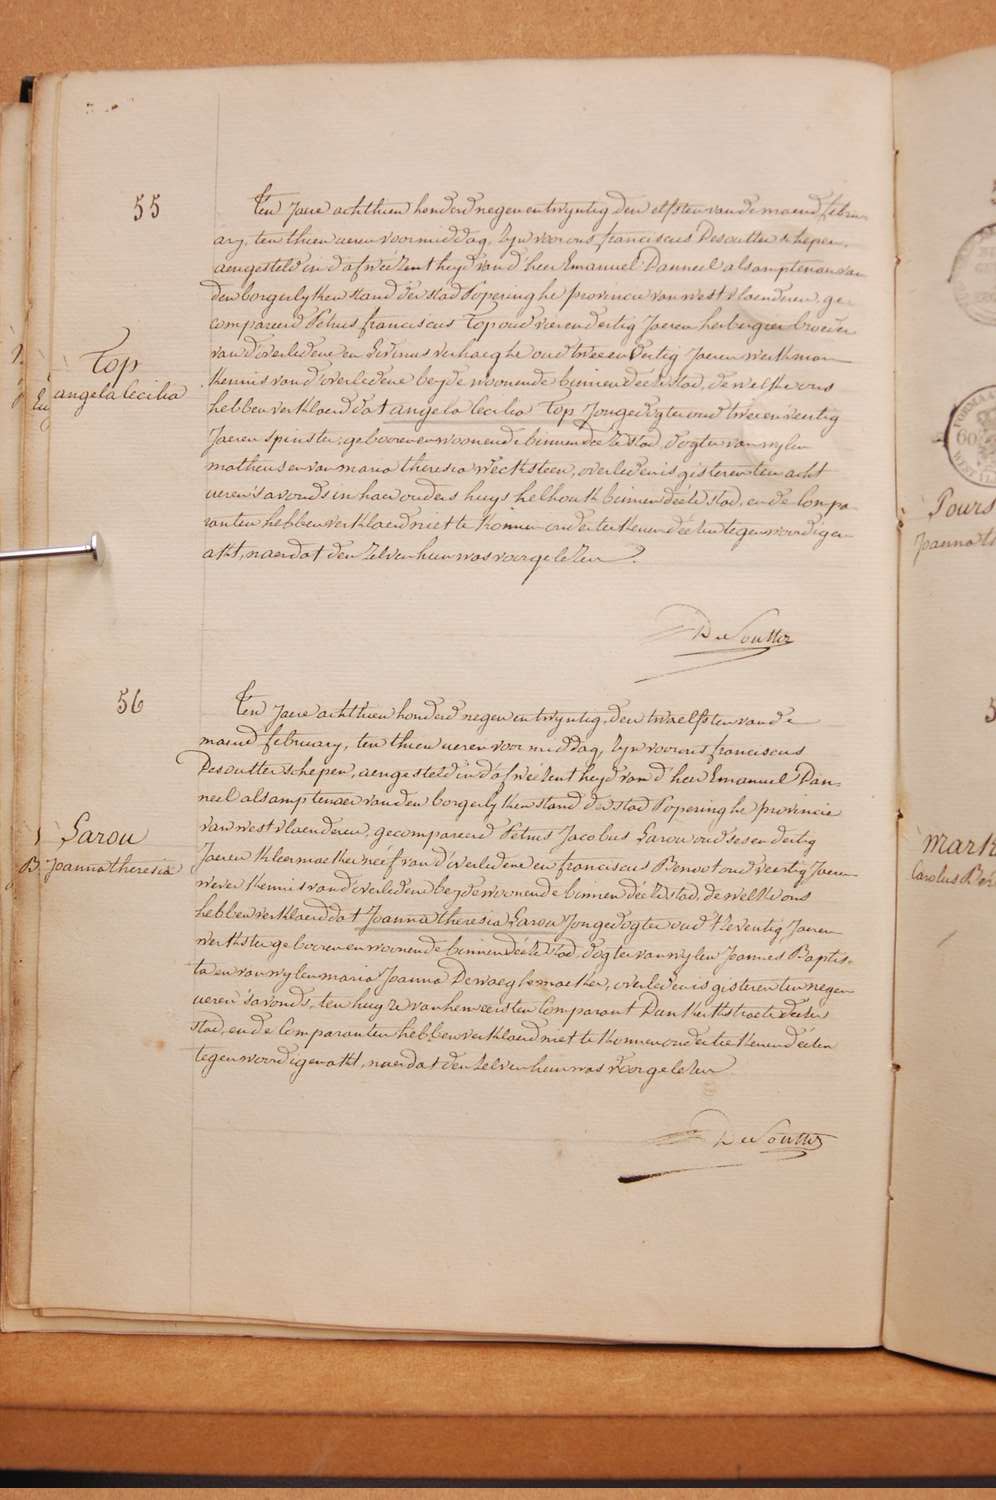 55
Top
angela Cecilia
Ten Jaere achthien honderd negen en twyntig den elfsten van de maend febru-
ary, ten thien ueren voormiddag, Zyn voor ons franciscus Desoutter schepen,
aengesteld in d'afweézentheyd van d'heer Emanuel Danneel als amptenaer van
den borgerlyken stand der stad Poperinghe provincie van westvlaenderen, ge-
compareerd Petrus franciscus Top oud vier en dertig Jaeren herbergier broeder
van d'overledene en Livinus verhaeghe oud twee en dertig Jaeren werkman
kennis van d'overledene beyde woonende binnen deéze stad, de welke ons
hebben verklaerd dat angela Cecilia Top Jonge dogter oud twee en veertig
Jaeren spinster, gebooren en woonende binnen deéze stad, dogter van wylen
matheus en van maria theresia Wecksteen, overleden is gisteren ten acht
ueren 's avonds in haer ouders huys helhouk binnen deéze stad, en de Compa-
ranten hebben verklaerd niet te konnen onderteekenen deézen tegenwoordigen
akt, naer dat den zelven hun was voorgelezen.
DeSoutter
56
Sarou
Joanna theresia
Ten Jaere achthien honderd negen en twyntig, den twaelfsten van de
maend february, ten thien ueren voormiddag, Zyn voor ons franciscus
Desoutter schepen, aengesteld in d'afweézentheyd van d'heer Emanuel Dan-
neel als amptenaer van den borgerlyken stand der stad Poperinghe provincie
van westvlaenderen, gecompareerd Petrus Jacobus Sarou oud ses en dertig
Jaeren kleermaeker néef van d'overledene en franciscus Benoot oud veertig Jaeren
wever kennis van d'overledene beyde woonende binnen deéze stad, de welke ons
hebben verklaerd dat Joanna theresia Sarou Jonge dogter oud tzeventig Jaeren
werkster gebooren en woonende binnen deéze stad, dogter van wylen Joannes Baptis-
ta en van wylen maria Joanna Dewaeghemaeker, overleden is gisteren ten negen
ueren 's avonds, ten huyze van hem eersten Comparant Dunkerkstraete deézer
stad, en de Comparanten hebben verklaerd niet te konnen onderteekenen deézen
tegenwoordigen akt, naer dat den zelven hun was voorgelezen
DeSoutter
Pours
Joanna
60
mark
Carolus